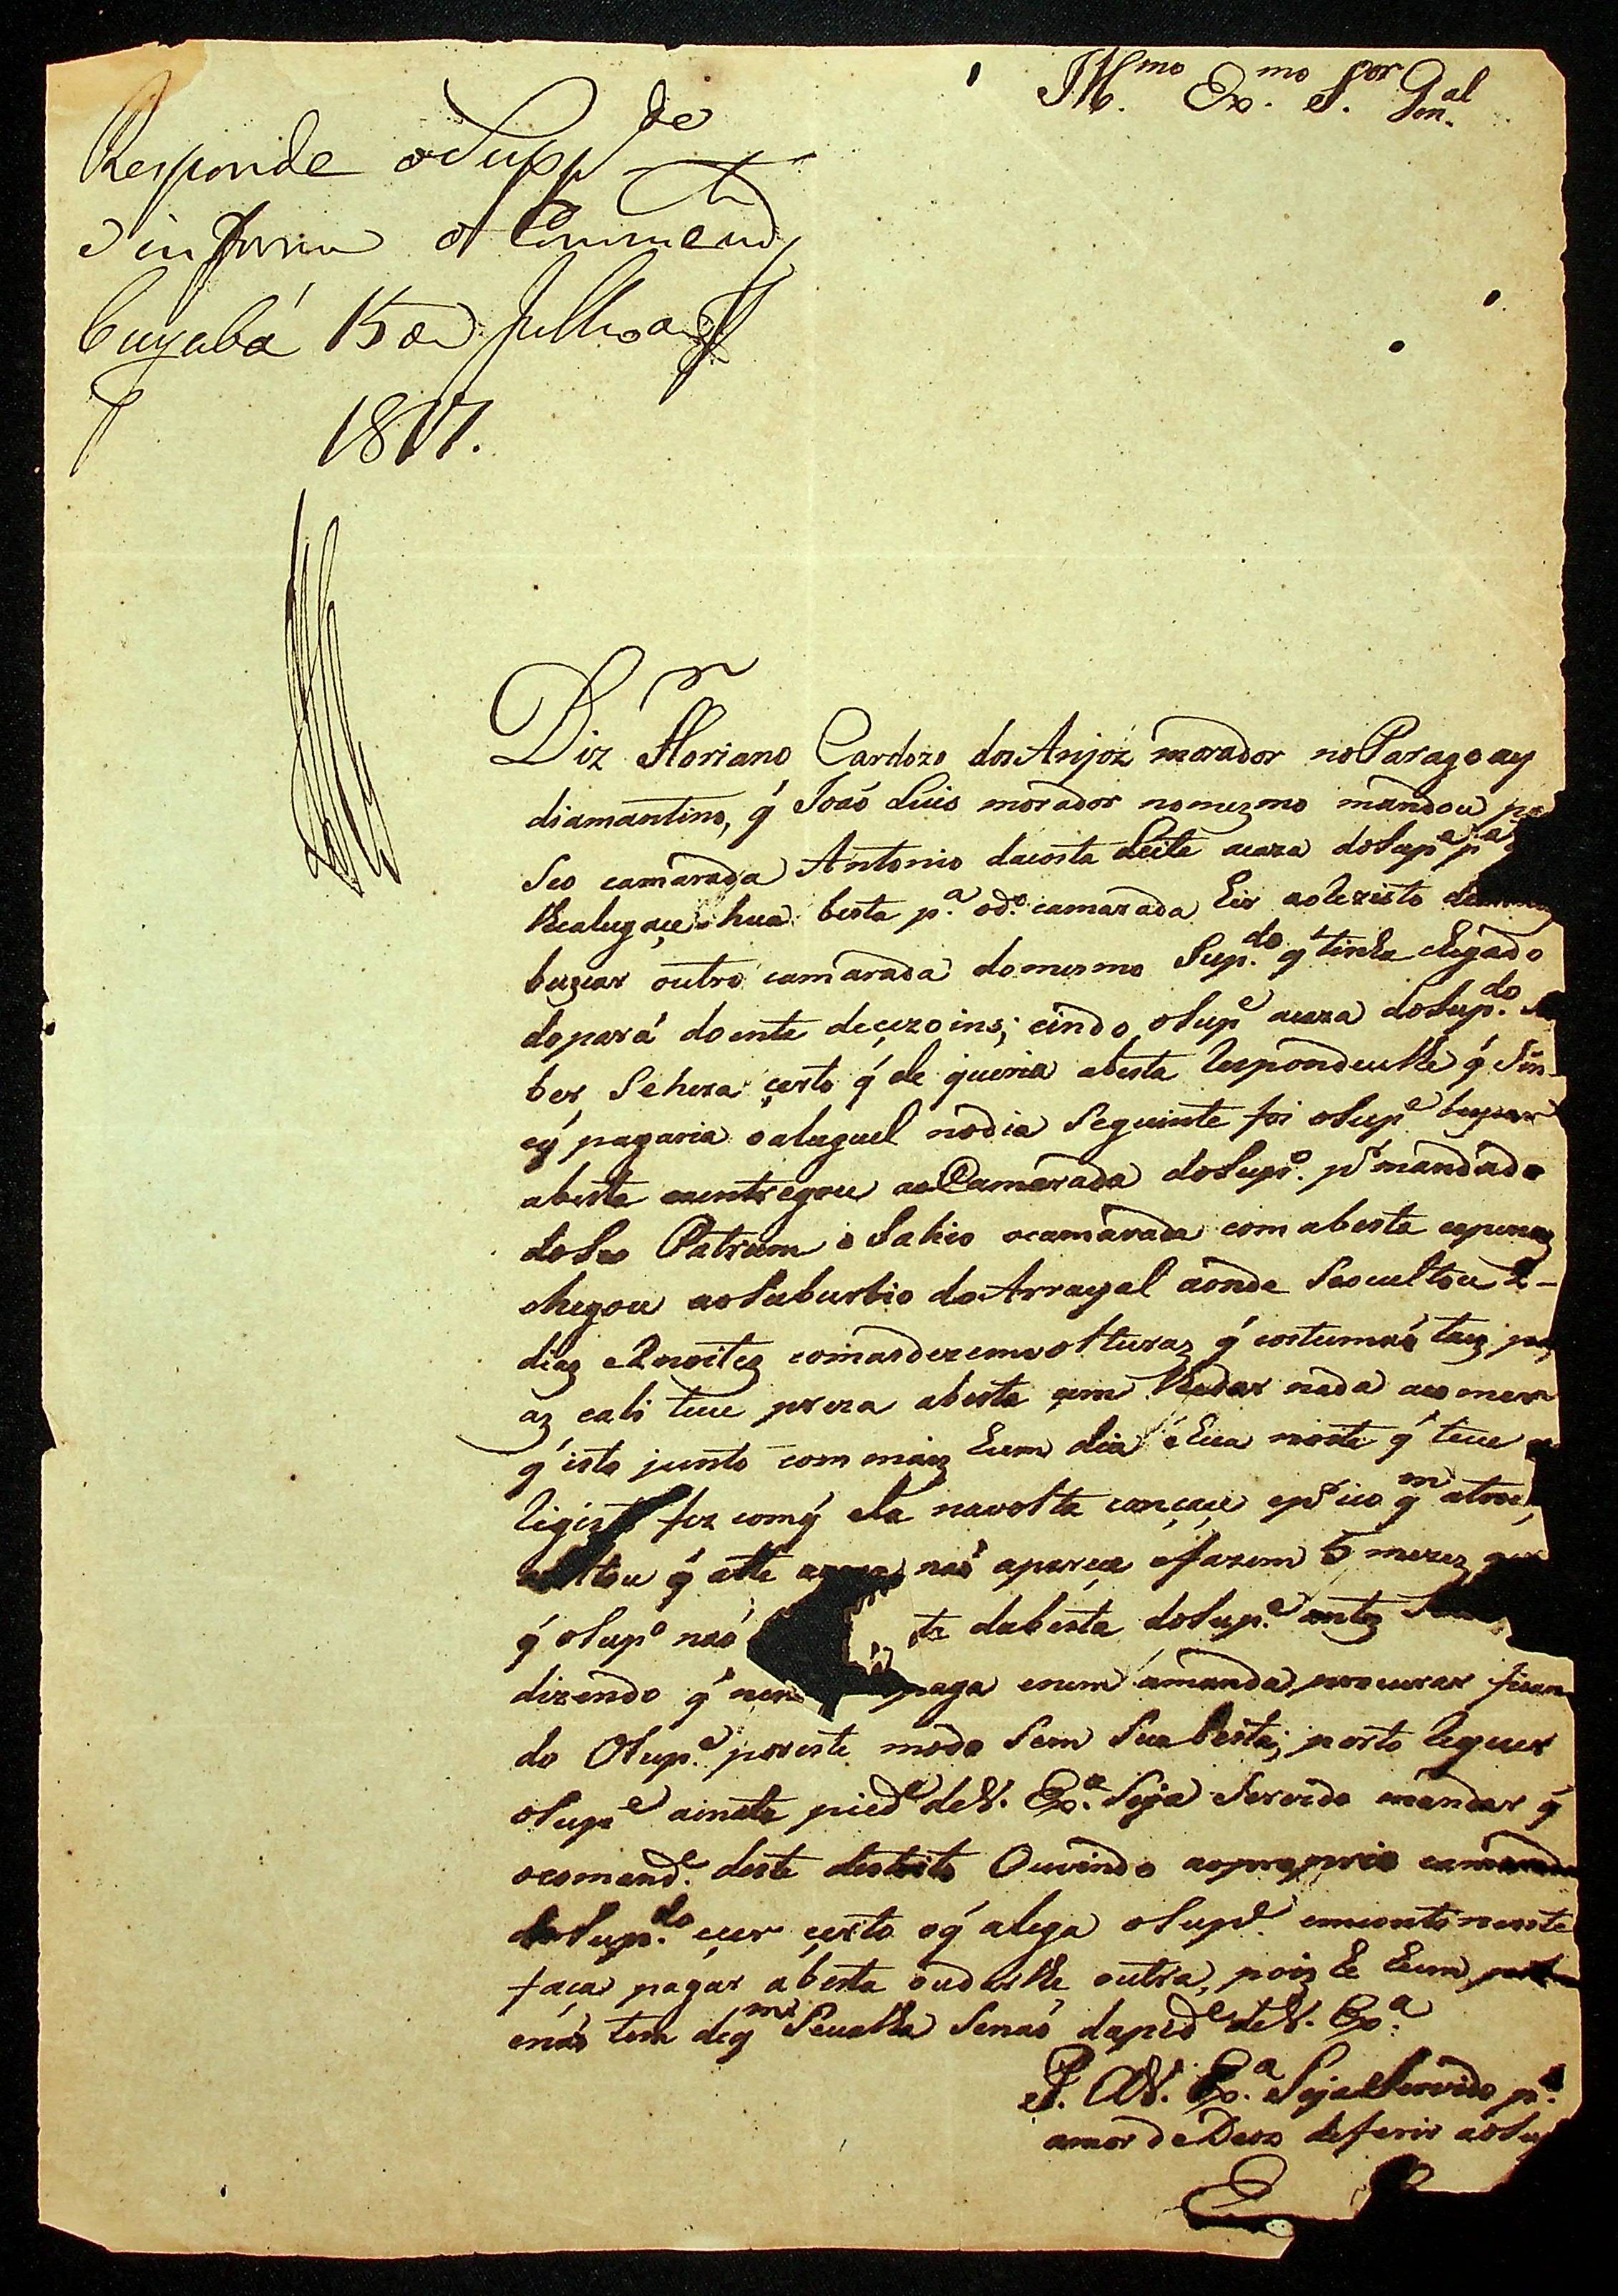 Ill.mo Ex.mo S.or Gen.al
Responde o Supp.do
e informe o Commend.e
Cuyabá 15 de Julho de
1817.
Diz Floriano Cardozo dos Anjoz morador no Paragoay
diamantino, q̃ Joaõ Luis morador no mezmo mandou por
Seo camarada Antonio da costa Leite acaza do Sup.e p.a
lhe alugaçe hua besta p.a o d.o camarada hir ao Rezisto
buzcar outro camarada do mesmo Sup.do q̃ tinha chegado
do pará doente de çezoins; e indo o Sup.e acaza do Sup.do Sa
ber Se hera çerto q̃ ele queria abesta Respondeulhe q̃ Sin
e q̃ pagaria o aluguel no dia Seguinte foi o Sup.e buscar
abesta e a entregou ao Camarada do Sup.o p.r mandado
do Seo Patram e Sahio o camarada com abesta e apenaz
chegou ao Suburbio do Arrayal aonde Se ocultou 2
diaz e 2 noitez com as dezemvolturaz q̃ costumaõ taiz
az e ali teve preza abesta sem lhe dar nada a comer
q̃ isto junto com maiz hum dia e hua noite q̃ teve
Rigisto fez com q̃ ela na volta cançaçe e p.r iço q.m a trouçe
a Soltou q̃ athe agora naõ apareçe e fazem 5 mezez
q̃ o Sup.o naõ te da besta do Sup.e antez
dizendo q̃ nem paga e nem a manda procurar fican
do O Sup.e por este modo Sem Sua besta; p.r isto Requer
o Sup.e a incta pied.e de V. Ex.a Seja Servido mandar q̃
o comend.e deste destrito Ouvindo ao proprio camarada
do Sup.do e çer çerto o q̃ alega o Sup.e em continente
faça pagar abesta ou dar lhe outra, poiz he hum
e naõ tem de q.m Se valha Senaõ da pied.e de V. Ex.a
P. A V. Ex.a Seja Servido p.r
amor de Deos deferir ao Sup
E